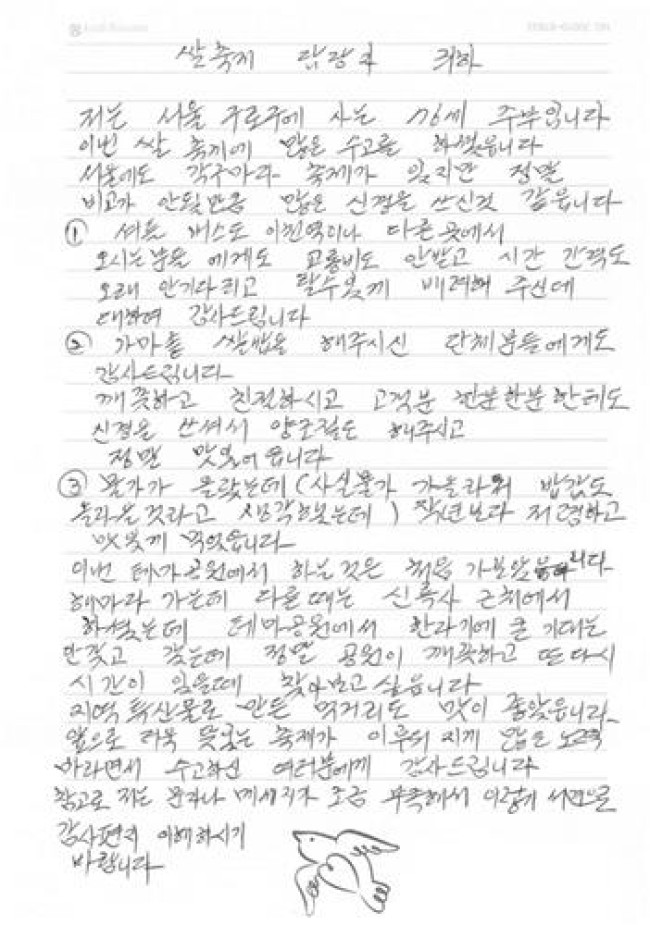 쌀축제 담당자 귀하
저는 서울 구로구에 사는 76세 주부입니다
이번 쌀 축제에 많은 수고를 하셨읍니다
서울에도 각구마다 축제가 있지만 정말
비교가 안될만큼 많은 신경을 쓰신것 같읍니다
① 셔틋 버스도 이천역이나 다른곳에서
오시는분들에게도 교통비도 안받고 시간 간격도
오래 안기다리고 탈수있께 배려해 주신데
대하여 감사드립니다
② 가마솥 쌀밥을 해주시신 단체분들에게도
감사드립니다
깨끗하고 친절하시고 고객분 한분한분한테도
신경을 쓰셔서 양군질도 해주시고
정말 맛있어읍니다
③ 물가가 올랐는데 (사실물가 가올라 밥값도
올라을것라고 생각했는데) 작년보다 저렴하고
맛있께 먹었읍니다
이번 테마공원에서 하는것은 처음 가보았읍니다
해마다 가는데 다른때는 신륵사 근처에서
하셨는데 테마공원에서 한라기에 큰 기대는
안갖고 갔는데 정말 공원이 깨끗하고 또다시
시간이 있을때 찾아보고 싶읍니다
지역 특산물로 만든 먹거리도 맛이 좋았읍니다
앞으로 더욱 뜻있는 축제가 이루어 지게 많은 노력
바라면서 수고하신 여러분에게 감사드립니다
참고로 저는 문자나 메세지가 조금 부족해서 이렇게 서면으로
감사편지 이해하시기
바랍니다